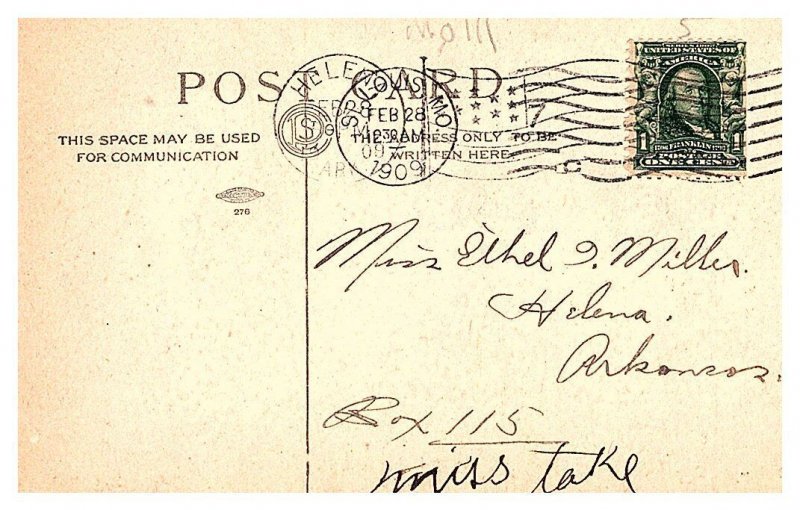 POST CARD
THIS SPACE MAY BE USED
FOR COMMUNICATION
276
THE ADDRESS ONLY TO BE
WRITTEN HERE
HELENA
ST. LOUIS, MO.
FEB 28
12 30 AM
1909
SERIES 1902
UNITED STATES OF
AMERICA
1
FRANKLIN
1
POSTAGE
ONE CENT
Miss Ethel I. Miller.
Helena.
Arkansas.
Box 115
miss take